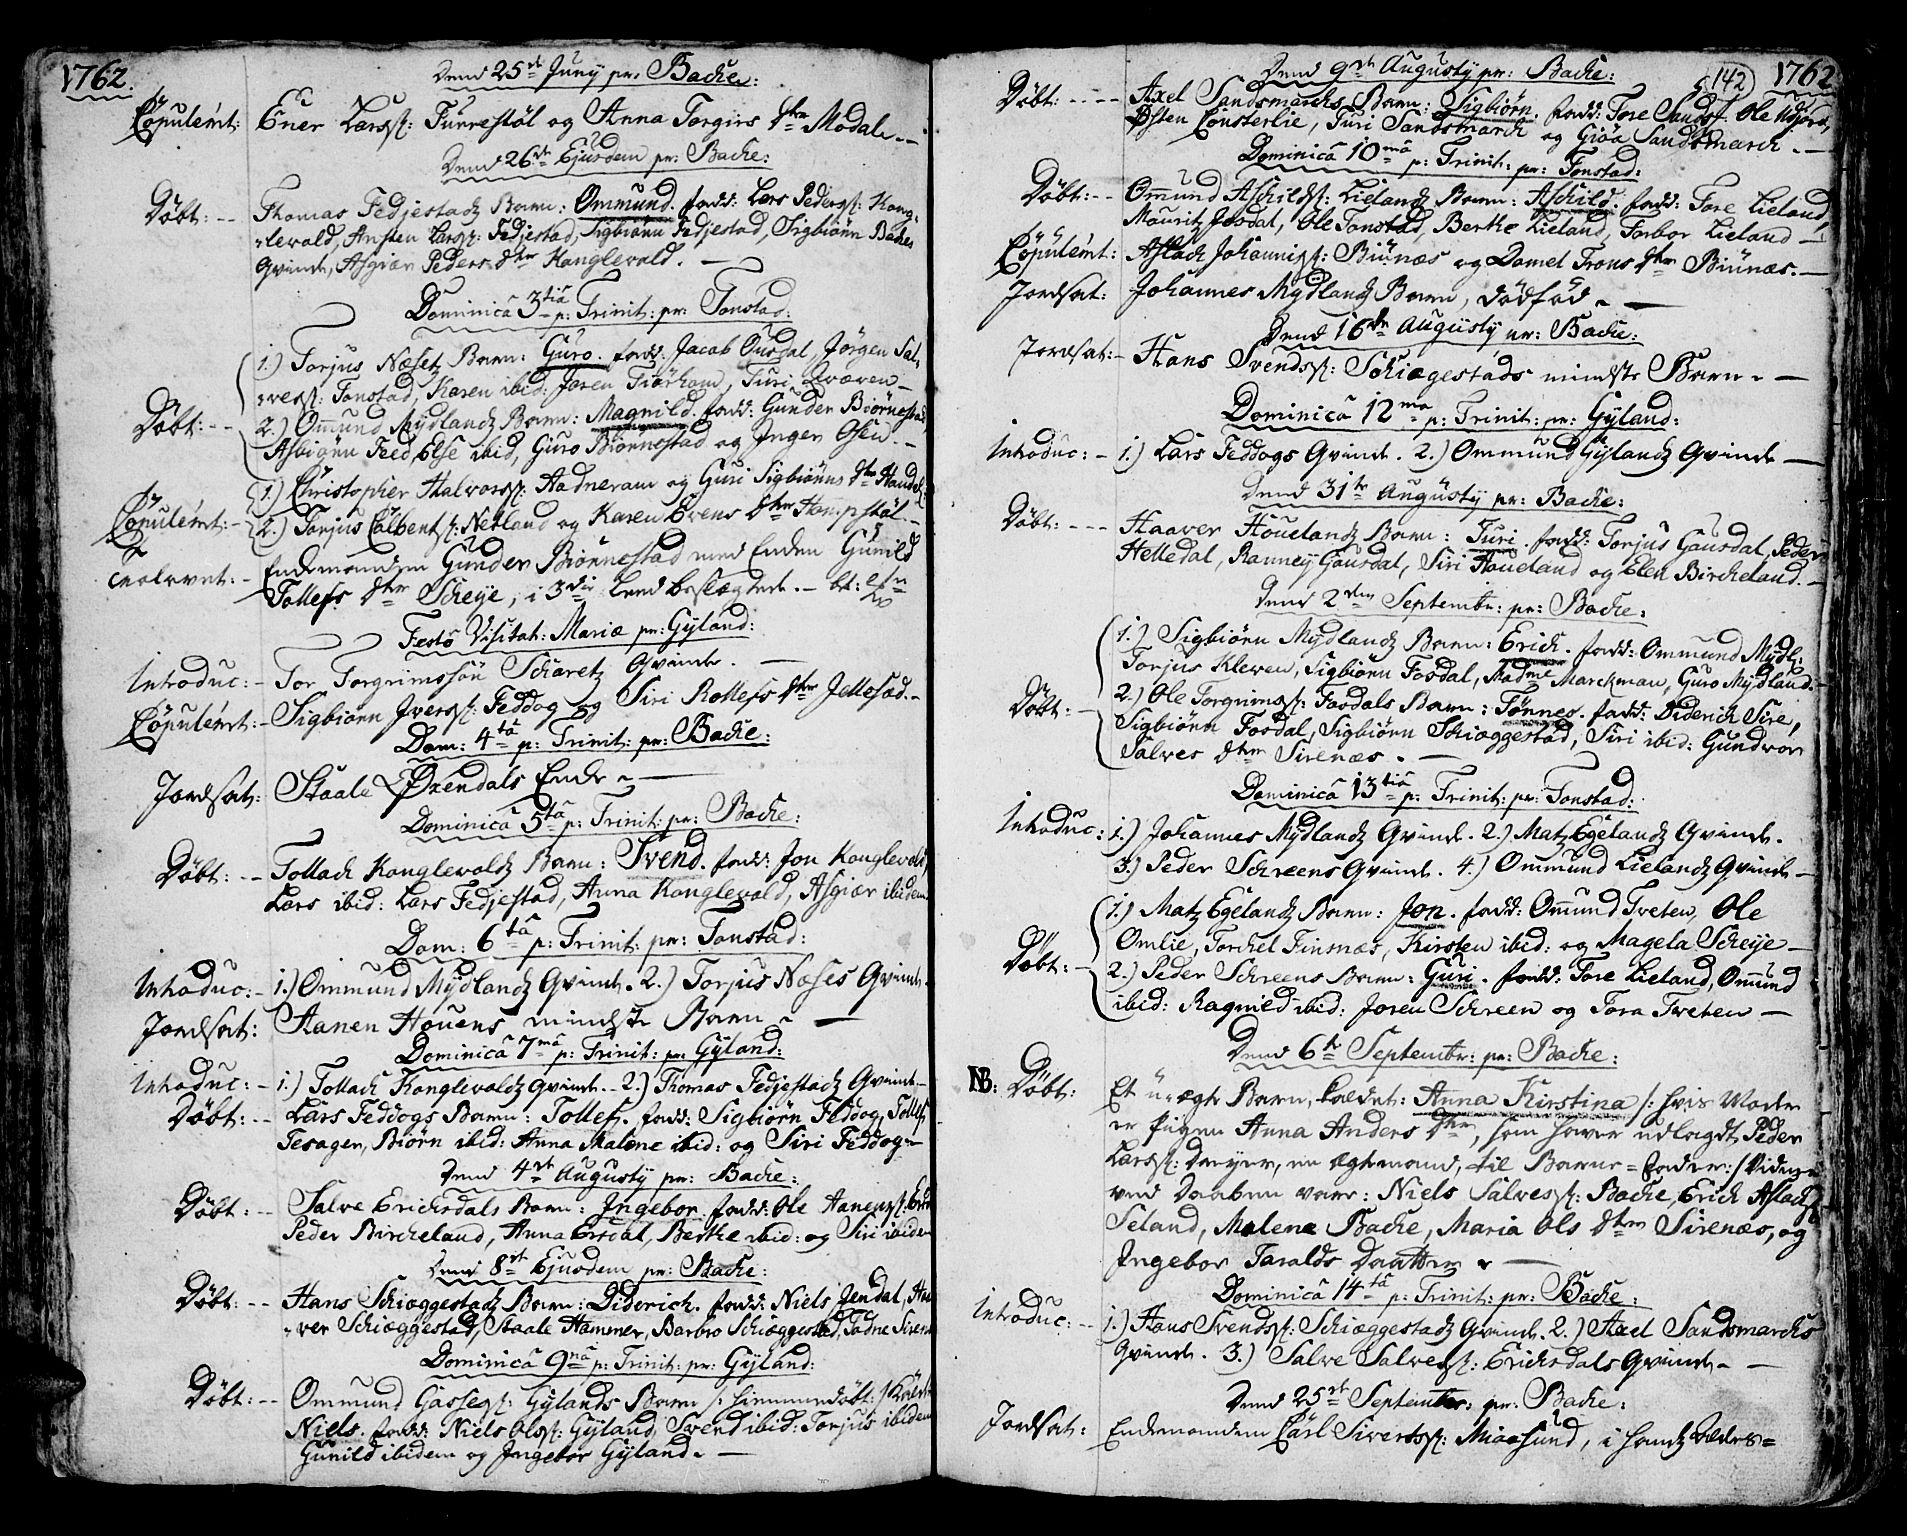 1762.
Dend 25de Juny pr: Backe:
Copulerit: Ener Larss: Furrestøl og Anna Torgirs dtr Modale.
Dend 26de Ejusdem pr: Backe:
Døbt: Thomas Fedjestads Barn: Ommund. fadd: Lars Peders: Kong-
levald, Ansten Larss: Fedjestad, Sigbiørn Fedjestad, Sigbiørn Backes
Qvinde, Asgiær Peders dtr Konglevald.
Dominicâ 3tiâ p: Trinit: pr: Tonstad:
Døbt: 1.) Torjus Næsets Barn: Guro. fadd: Jacob Ousdal, Jørgen Sal-
vess: Tonstad, Karen ibid: Joren Tiørhom, Turi Qvæven
2.) Ommund Mydlands Barn: Magnild. fadd: Gunder Biørnestad,
Asbiørn Feed, Else ibid, Guro Biørnestad og Inger Osen.
Copulerit: 1.) Christopher Halvorss: Aadneram og Guri Sigbiørns dtr Haudel:
2.) Torjus Colbents: Netland og Karen Evens dtr Hompstøl.
Enkemanden Gunder Biørnestad med Enken Gunild
Tollefs dtr Scheye, i 3die Leed beslegtede.
Festo Visitat: Mariæ pr: Gyland:
Introduc: Tor Torgrimssøn Schærets Qvinde.
Copulerit: Sigbiørn Iverss: Feddog og Siri Rollefs dtr Jellesad.
Dom: 4tâ p: Trinit: pr: Backe:
Jordsat: Staale Øxendals Enke
Dominicâ 5tâ p: Trinit: pr: Backe:
Døbt: Tollach Konglevalds Barn: Svend. fadd: Jon Konglevald,
Lars ibid: Lars Fedjestad, Anna Konglevald, Asgiær ibidem.
Dom: 6tâ p: Trinit: pr: Tonstad:
Introduc: 1.) Ommund Mydlands Qvinde. 2.) Torjus Næses Qvinde.
Jordsat: Aanen Houens mindste Barn
Dominicâ 7mâ p: Trinit: pr: Gyland:
Introduc: 1.) Tollach Konglevalds Qvinde. 2.) Thomas Fedjestads Qvinde
Døbt: Lars Feddogs Barn: Tollef. fadd: Sigbiørn Feddog, Tollef
Tesager, Biørn ibid: Anna Malene ibid: og Siri Feddog
Dend 4de Augusty pr: Backe:
Døbt: Salve Ericksdals Barn: Ingebor. fadd: Ole Aanens:
Peder Bircheland, Anna Ersdal, Berthe ibid: og Siri ibidem
Dend 8de Ejusdem pr: Backe:
Døbt: Hans Schiæggestads Barn: Diderich. fadd: Niels Jendal,
ver Schiæggestad, Staale Hammer, Barbro Schiæggestad, Tadne Siren
Dominicâ 9nâ p: Trinit: pr: Gyland:
Døbt: Ommund Gasses: Gylands Barn /: hiemmedøbt :/ kaldet
Niels. fadd: Niels Olss: Gyland, Svend ibid: Torjus ibidem
Gunild ibidem og Ingebor Gyland.
142 1762
Dend 9de Augusty pr: Backe:
Døbt: Axel Sandsmarchs Barn: Sigbiørn. fadd: Tore Sandsm. Ole
Østen Consterlie, Turi Sandsmarch og Giøa Sandsmarch.
Dominicâ 10mâ p: Trinit: pr: Tonstad:
Døbt: Ommund Aschilds: Lielands Barn: Aschild. fadd: Tore Lieland,
Mauritz Josdal, Ole Tonstad, Berthe Lieland, Torbor Lieland
Copulerit: Aslach Johanniss: Biunæs og Damel Trons dtr Biunæs.
Jordsat: Johannes Mydlands Barn, dødfød.
Dend 16de Augusty pr: Backe:
Jordsat: Hans Svends: Schiægestads mindste Barn.
Dominicâ 12ma p: Trinit: pr: Gyland:
Introduc: 1.) Lars Feddogs Qvinde. 2.) Ommund Gylands Qvinde
Dend 31te Augusty pr: Backe:
Døbt: Haaver Houelands Barn: Turi. fadd: Torjus Gausdal, Peder
Helledal, Ranney Gausdal, Siri Houeland og Elen Bircheland.
Dend 2den Septembr: pr: Backe:
Døbt: 1.) Sigbiørn Mydlands Barn: Erich. fadd: Ommund Mydl:
Torjus Kleven, Sigbiørn Fosdal, Madme Marckman, Guro Mydland.
2.) Ole Torgrims: Fosdals Barn: Tønnes. fadd: Diderich Sire,
Sigbiørn Fosdal, Sigbiørn Schiæggestad, Siri ibid: Gundvor
Salves dtr Sirenæs.
Dominicâ 13tiâ p: Trinit: pr: Tonstad:
Introduc: 1.) Johannes Mydlands Qvinde. 2.) Matz Egelands Qvinde.
3.) Peder Schreens Qvinde. 4.) Ommund Lielands Qvinde
Døbt: 1.) Matz Egelands Barn: Jon. fadd: Omund Treten, Ole
Omlie, Torchel Finsnæs, Kirsten ibid: og Magela Scheye
2.) Peder Schreens Barn: Guri. fadd: Tore Lieland, Omund
ibid: Ragnild ibid: Joren Schreen og Tora Treten
Dend 6te Septembr: pr: Backe:
NB: Døbt: Et u-ægte Barn, kaldet: Anna Kirstina /: hvis Moder
er Pigen Anna Anders dtr, som haver udlagdt Peder
Larss: Dreyer, en Ægtemand, til Barne-fader :/ Vidner
ved Daaben vare: Niels Salvess: Backe, Erich Aslachs:
Seland, Malene Backe, Maria Ols dtr Sirenæs, og
Ingebor Taralds Daatter
Dominicâ 14tâ p: Trinit: pr: Backe:
Introduc: 1.) Hans Svends: Schiæggestads Qvinde. 2.) Axel Sandsmarchs
Qvinde. 3.) Salve Salves: Ericksdals Qvinde
Dend 25de September: pr: Backe:
Jordsat: Enkemanden Carl Siverts: Miaasund, i hands Alders-